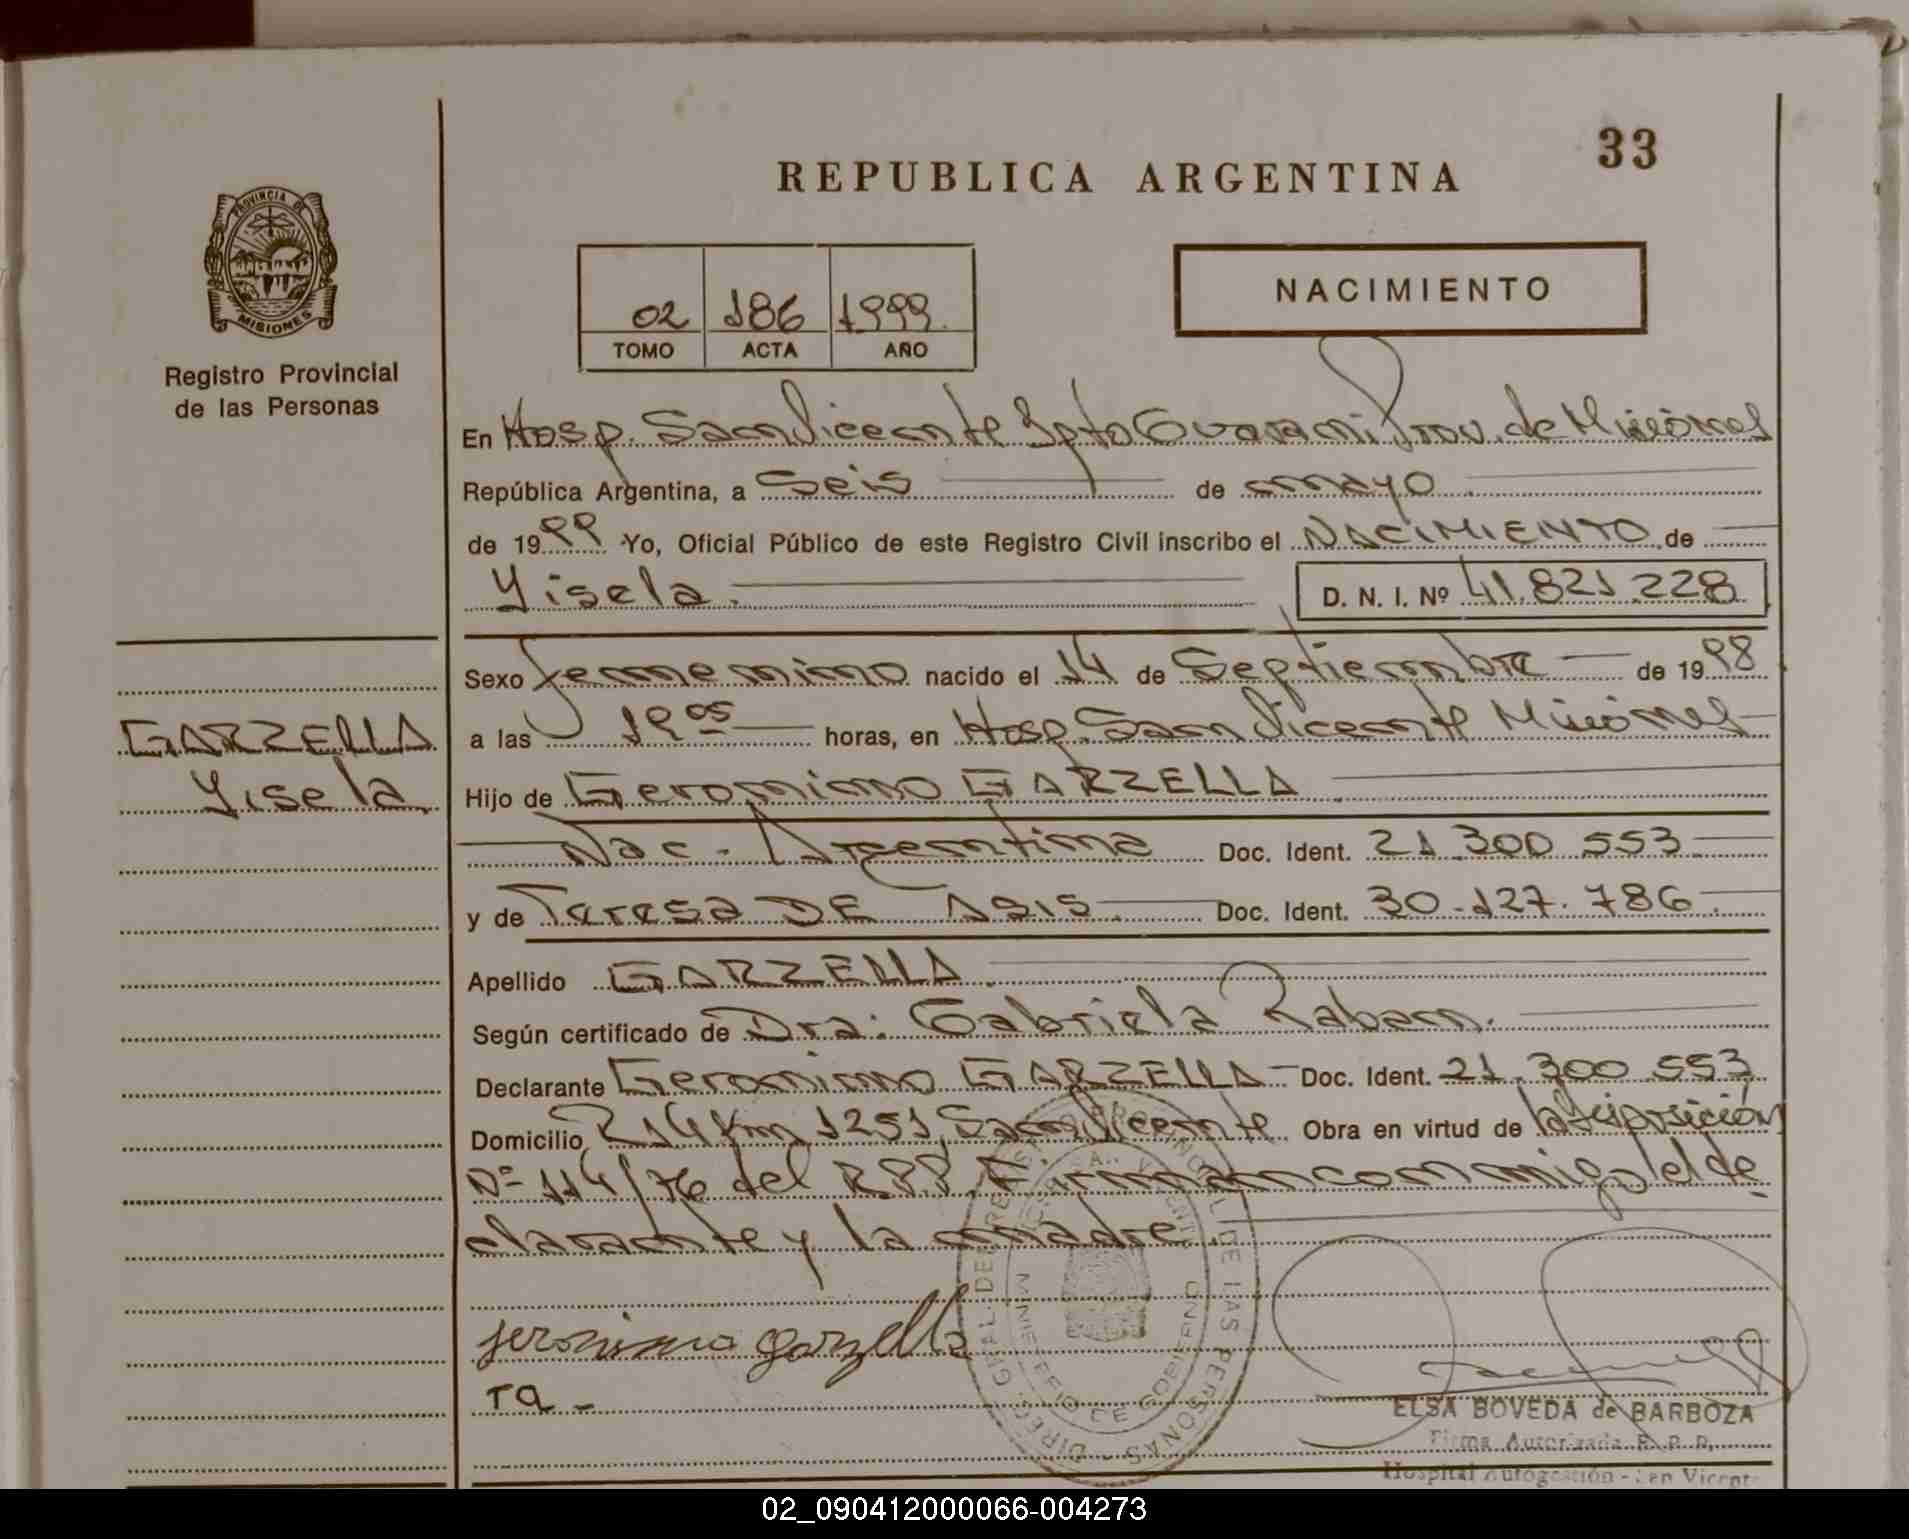 33
REPUBLICA ARGENTINA
PROVINCIA DE
MISIONES
Registro Provincial
de las Personas
02 186 1999
TOMO ACTA AÑO
NACIMIENTO
En Hosp. San Vicente Dpto Guarani Prov. de Misiones
República Argentina, a Seis de mayo
de 1999 Yo, Oficial Público de este Registro Civil inscribo el NACIMIENTO de
Yisela. D. N. I. Nº 41.821.228
Sexo femenino nacido el 14 de Septiembre de 1998
GARZELLA
Yisela
a las 19 05 horas, en Hosp. San Vicente Misiones
Hijo de Geronimo GARZELLA
Nac. Argentina Doc. Ident. 21.300.553
y de Teresa DE ASIS Doc. Ident. 30.127.786
Apellido GARZELLA
Según certificado de Dra: Gabriela Raban.
Declarante Geronimo GARZELLA Doc. Ident. 21.300.553
Domicilio R 14 Km 1251 San Vicente Obra en virtud de la disposición
Nº 114/76 del R.P.P. Firman conmigo el de
clarante y la madre.
jeronimo garzella
Ta-
ELSA BOVEDA de BARBOZA
Firma Autorizada R. P. P.
Hospital Autogestión - San Vicente
02_090412000066-004273